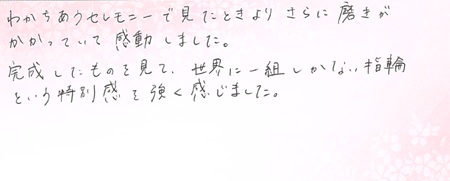 わかちあうセレモニーで見たときより さらに 磨きが
かかっていて 感動しました。
完成したものを見て、世界に一組しかない指輪
という特別感を強く感じました。